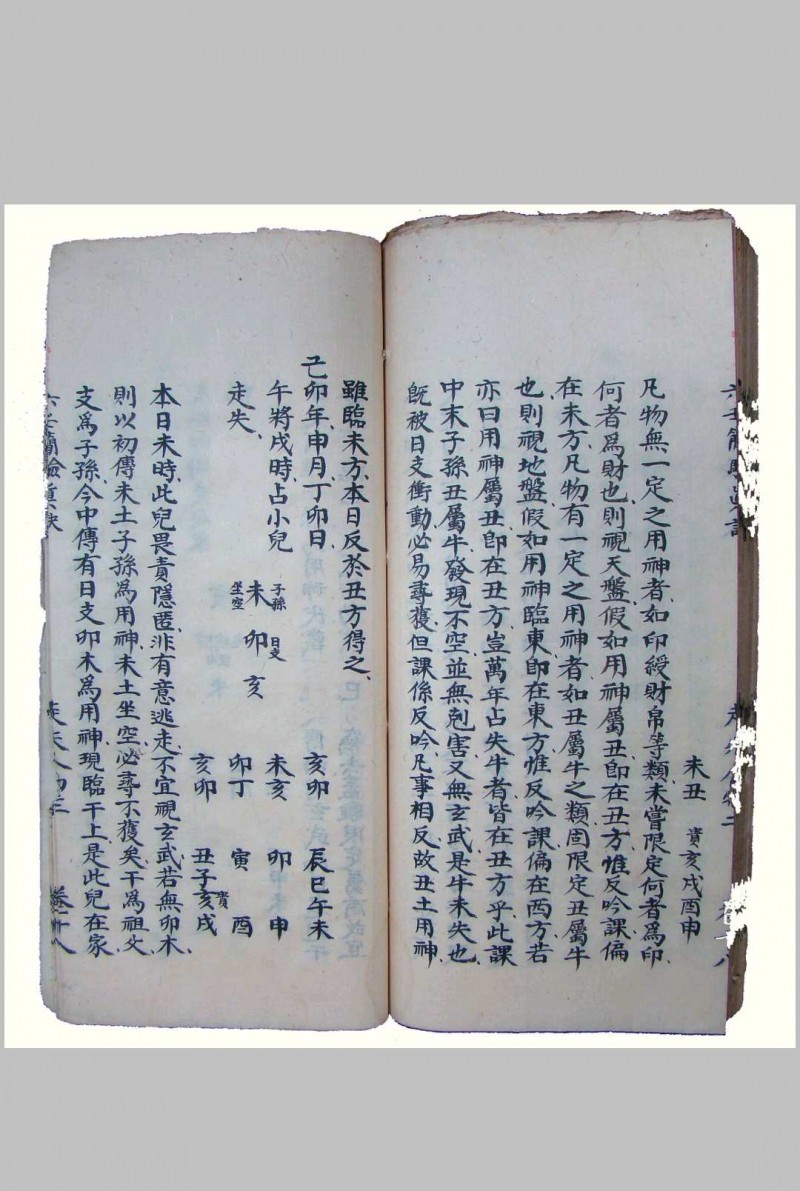 未丑 貴亥戌酉申
凡物無一定之用神者如印綬財帛等類未嘗限定何者爲印
何者爲財也則視天盤假如用神屬丑即在丑方惟反吟課偏
在未方凡物有一定之用神者如丑屬牛之類固限定丑屬牛
也則視地盤假如用神臨東即在東方惟反吟課偏在西方若
亦曰用神屬丑即在丑方豈萬年占失牛者皆在丑方乎此課
中末子孫丑屬牛發現不空並無剋害又無玄武是牛未失也
既被日支衝動必易尋獲但課係反吟凡事相反故丑土用神
雖臨未方本日反於丑方得之
己卯年申月丁卯日 亥卯 辰巳午未
午將戌時占小兒 子孫 日支 未亥 卯 申
走失 坐空 未卯亥 卯丁 寅 酉
亥卯 丑子亥戌 貴
本日未時此兒畏責隱匿非有意逃走不宜視玄武若無卯木
則以初傳未土子孫爲用神未土坐空必尋不獲矣干爲祖父
支爲子孫今中傳有日支卯木爲用神現臨干上是此兒在家
六壬簡驗真訣 走失 卷二十八